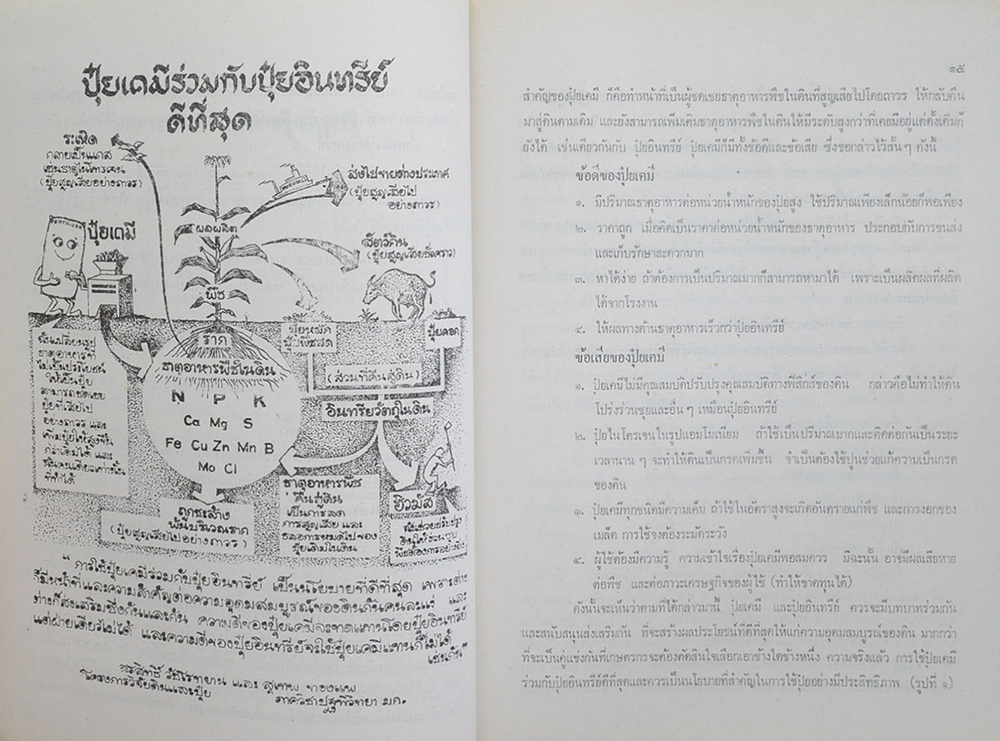 ปุ๋ยเคมีร่วมกับปุ๋ยอินทรีย์
ดีที่สุด
ระเหิด
กลายเป็นแกส
เช่นธาตุไนโตรเจน
(ปุ๋ยสูญเสียอย่างถาวร)
ส่งไปขายต่างประเทศ
(ปุ๋ยสูญเสียไป
อย่างถาวร)
ปุ๋ยเคมี
ผลผลิต
สัตว์กิน
(ปุ๋ยสูญเสียชั่วคราว)
พืช
ราก
ปุ๋ยหมัก
ปุ๋ยพืชสด
ปุ๋ยคอก
(ส่วนที่คืนสู่ดิน)
ธาตุอาหารพืชในดิน
N P K
Ca Mg S
Fe Cu Zn Mn B
Mo Cl
อินทรียวัตถุในดิน
ธาตุอาหารพืช
คืนสู่ดิน
เป็นการลด
การสูญเสีย และ
ชลอการหมดไปของ
ปุ๋ยเดิมในดิน
ฮิวมัส
ถูกชะล้าง
พ้นบริเวณราก
(ปุ๋ยสูญเสียไปอย่างถาวร)
"การใช้ปุ๋ยเคมีร่วมกับปุ๋ยอินทรีย์ เป็นนโยบายที่ดีที่สุด เพราะต่าง
ก็มีหน้าที่และความสำคัญต่อความอุดมสมบูรณ์ของดินกันคนละแง่ และ
ต่างก็ส่งเสริมซึ่งกันและกัน ความดีของปุ๋ยเคมีจะทดแทนโดยปุ๋ยอินทรีย์
แต่ฝ่ายเดียวไม่ได้ และความดีของปุ๋ยอินทรีย์จะใช้ปุ๋ยเคมีแทนก็ไม่ได้
เช่นกัน"
วรสิทธิ์ วัชโรทยาน และ สุเทพ ทองแพ
โครงการวิจัยดินและปุ๋ย
ภาควิชาปฐพีวิทยา มก.
๑๕
สำคัญของปุ๋ยเคมี ก็คือทำหน้าที่เป็นผู้ชดเชยธาตุอาหารพืชในดินที่สูญเสียไปโดยถาวร ให้กลับคืน
มาสู่ดินตามเดิม และยังสามารถเพิ่มเติมธาตุอาหารพืชในดินให้มีระดับสูงกว่าที่เคยมีอยู่แต่ดั้งเดิมก็
ยังได้ เช่นเดียวกันกับ ปุ๋ยอินทรีย์ ปุ๋ยเคมีก็มีทั้งข้อดีและข้อเสีย ซึ่งขอกล่าวไว้สั้น ๆ ดังนี้
ข้อดีของปุ๋ยเคมี
๑. มีปริมาณธาตุอาหารต่อหน่วยน้ำหนักของปุ๋ยสูง ใช้ปริมาณเพียงเล็กน้อยก็พอเพียง
๒. ราคาถูก เมื่อคิดเป็นราคาต่อหน่วยน้ำหนักของธาตุอาหาร ประกอบกับการขนส่ง
และเก็บรักษาสะดวกมาก
๓. หาได้ง่าย ถ้าต้องการเป็นปริมาณมากก็สามารถหามาได้ เพราะเป็นผลิตผลที่ผลิต
ได้จากโรงงาน
๔. ให้ผลทางด้านธาตุอาหารเร็วกว่าปุ๋ยอินทรีย์
ข้อเสียของปุ๋ยเคมี
๑. ปุ๋ยเคมีไม่มีคุณสมบัติปรับปรุงคุณสมบัติทางฟิสิกส์ของดิน กล่าวคือไม่ทำให้ดิน
โปร่งร่วนซุยและอื่น ๆ เหมือนปุ๋ยอินทรีย์
๒. ปุ๋ยไนโตรเจนในรูปแอมโมเนียม ถ้าใช้เป็นปริมาณมากและติดต่อกันเป็นระยะ
เวลานาน ๆ จะทำให้ดินเป็นกรดเพิ่มขึ้น จำเป็นต้องใช้ปูนช่วยแก้ความเป็นกรด
ของดิน
๓. ปุ๋ยเคมีทุกชนิดมีความเค็ม ถ้าใช้ในอัตราสูงจะเกิดอันตรายแก่พืช และการงอกของ
เมล็ด การใช้จึงต้องระมัดระวัง
๔. ผู้ใช้ต้องมีความรู้ ความเข้าใจเรื่องปุ๋ยเคมีพอสมควร มิฉะนั้น อาจมีผลเสียหาย
ต่อพืช และต่อภาวะเศรษฐกิจของผู้ใช้ (ทำให้ขาดทุนได้)
ดังนั้นจะเห็นว่าตามที่ได้กล่าวมานี้ ปุ๋ยเคมี และปุ๋ยอินทรีย์ ควรจะมีบทบาทร่วมกัน
และสนับสนุนส่งเสริมกัน ที่จะสร้างผลประโยชน์ที่ดีที่สุดให้แก่ความอุดมสมบูรณ์ของดิน มากกว่า
ที่จะเป็นคู่แข่งกันที่เกษตรกรจะต้องตัดสินใจเลือกเอาข้างใดข้างหนึ่ง ความจริงแล้ว การใช้ปุ๋ยเคมี
ร่วมกับปุ๋ยอินทรีย์ดีที่สุดและควรเป็นนโยบายที่สำคัญในการใช้ปุ๋ยอย่างมีประสิทธิภาพ (รูปที่ ๑)